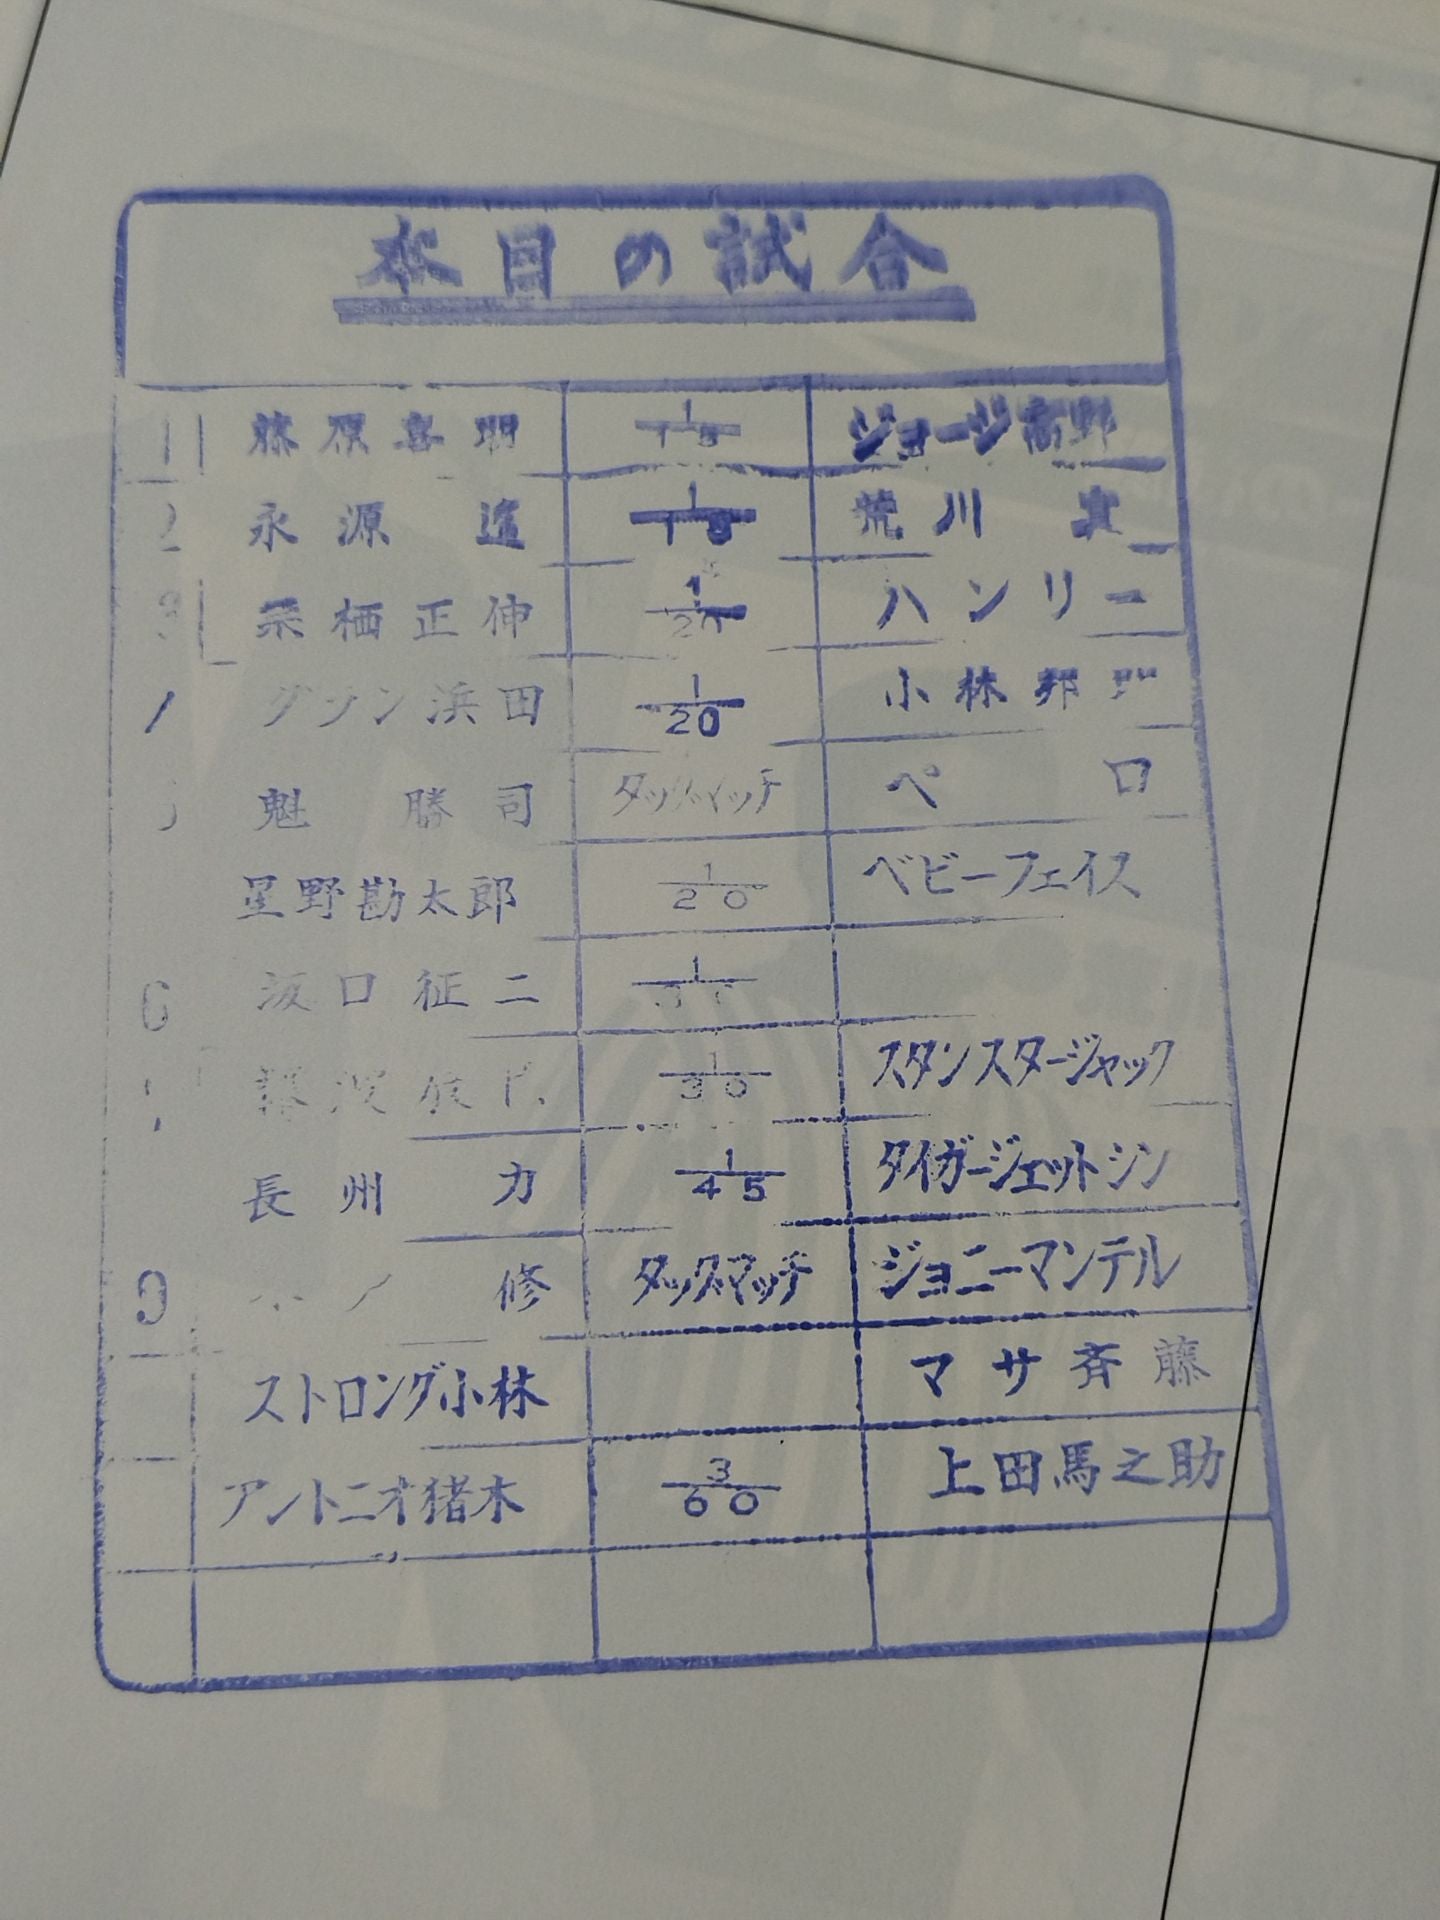 本日の試合
1 藤原喜明 1/15 ジョージ高野
2 永源 遙 1/15 荒川 真
3 栗栖正伸 1/20 ハンリー
グラン浜田 1/20 小林邦
魁 勝司 タッグマッチ ペ ロ
星野勘太郎 1/20 ベビーフェイス
6 坂口征二 1/
1/30 スタンスタージャック
長州 力 1/45 タイガージェットシン
9 修 タッグマッチ ジョニーマンテル
ストロング小林 マサ斉藤
アントニオ猪木 3/60 上田馬之助